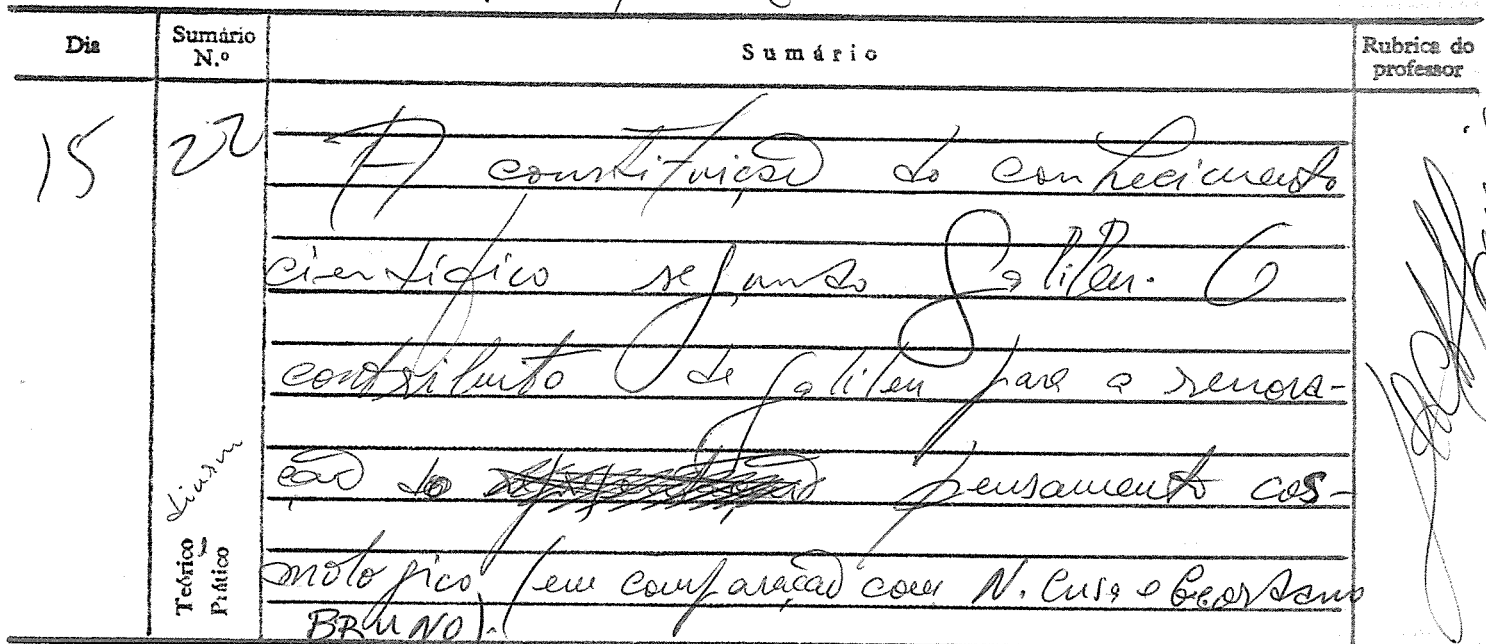 Dia
Sumário N.º
Sumário
Rubrica do professor
15
22
A constituição do conhecimento
científico segundo Galileu. O
contributo de Galileu para a renova-
ção do pensamento cos-
mológico (em comparação com N. Cusa e Geordano
BRUNO).
Teórico
Prático